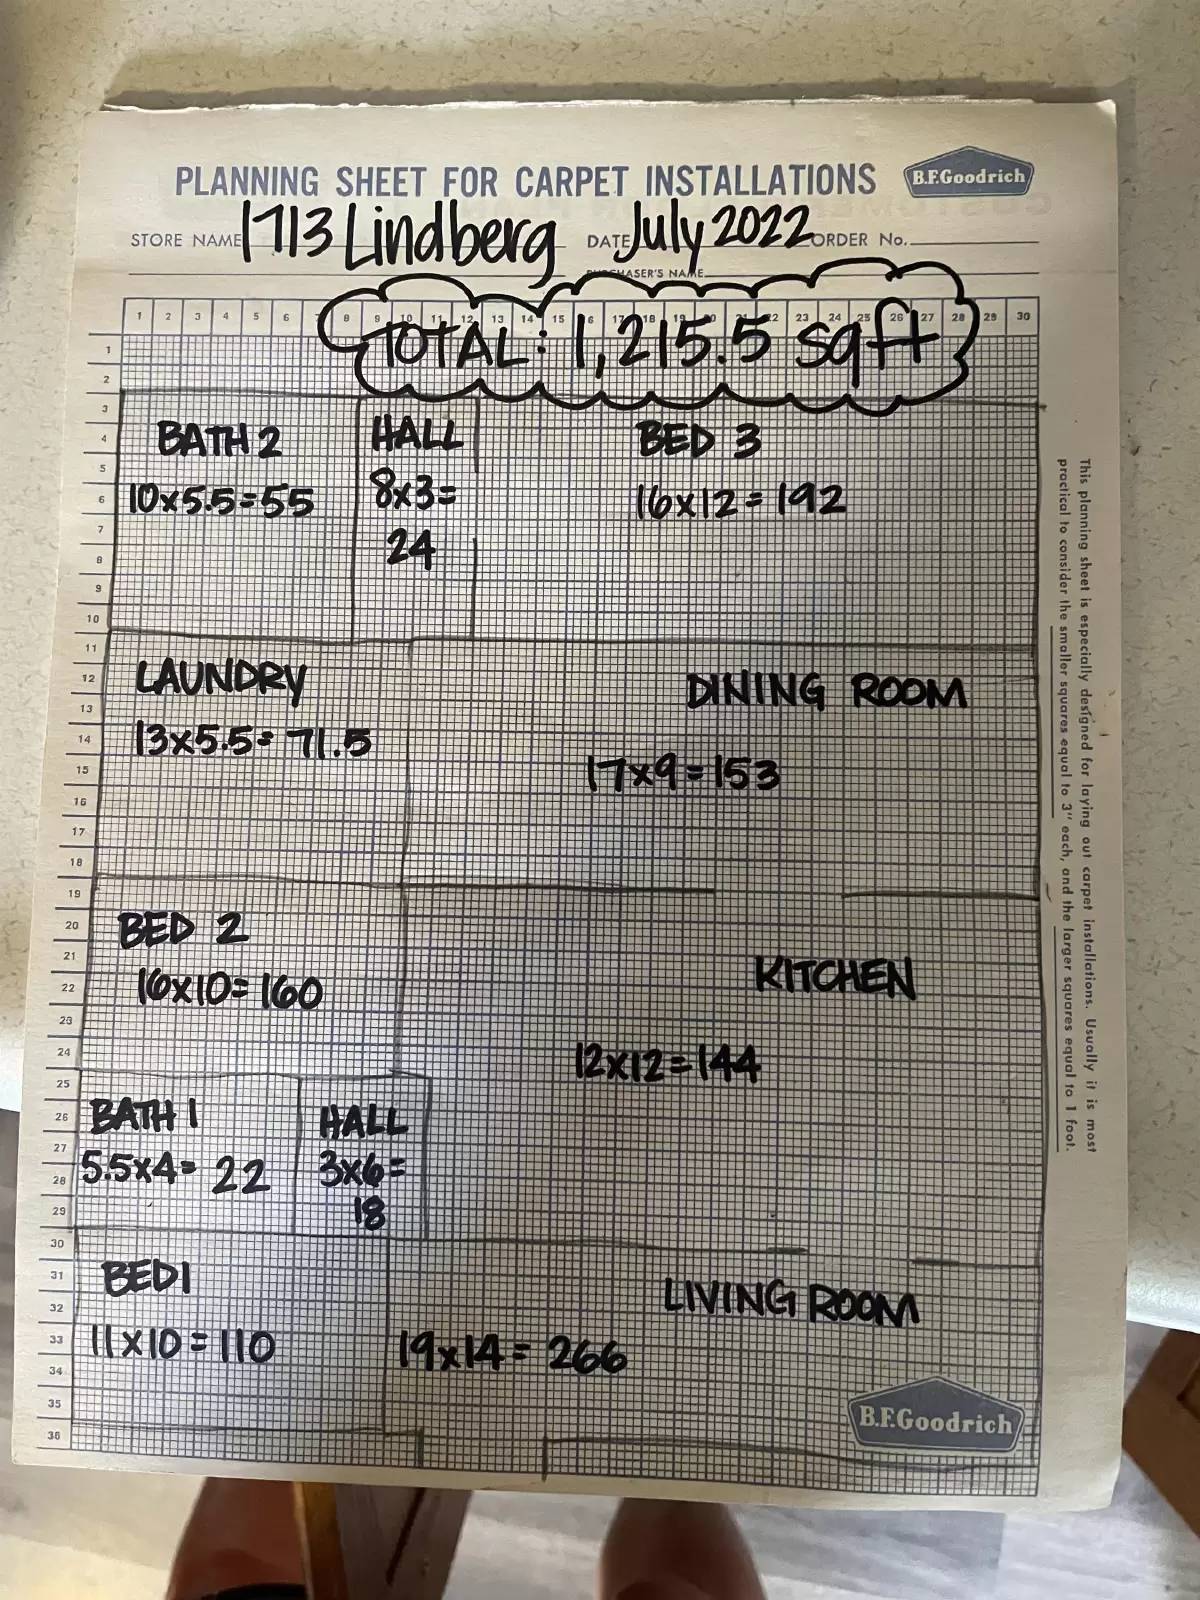 PLANNING SHEET FOR CARPET INSTALLATIONS
B.F.Goodrich
STORE NAME 1713 Lindberg DATE July 2022 ORDER No.
PURCHASER'S NAME
1 2 3 4 5 6 7 8 9 10 11 12 13 14 15 16 17 18 19 20 21 22 23 24 25 26 27 28 29 30
TOTAL: 1,215.5 sqft
1
2
3
4
5
6
7
8
9
10
11
12
13
14
15
16
17
18
19
20
21
22
23
24
25
26
27
28
29
30
31
32
33
34
35
36
BATH 2
10x5.5=55
HALL
8x3=
24
BED 3
16x12=192
LAUNDRY
13x5.5=71.5
DINING ROOM
17x9=153
BED 2
16x10=160
KITCHEN
12x12=144
BATH 1
5.5x4=22
HALL
3x6=
18
BED 1
11x10=110
LIVING ROOM
19x14=266
B.F.Goodrich
This planning sheet is especially designed for laying out carpet installations. Usually it is most
practical to consider the smaller squares equal to 3" each, and the larger squares equal to 1 foot.